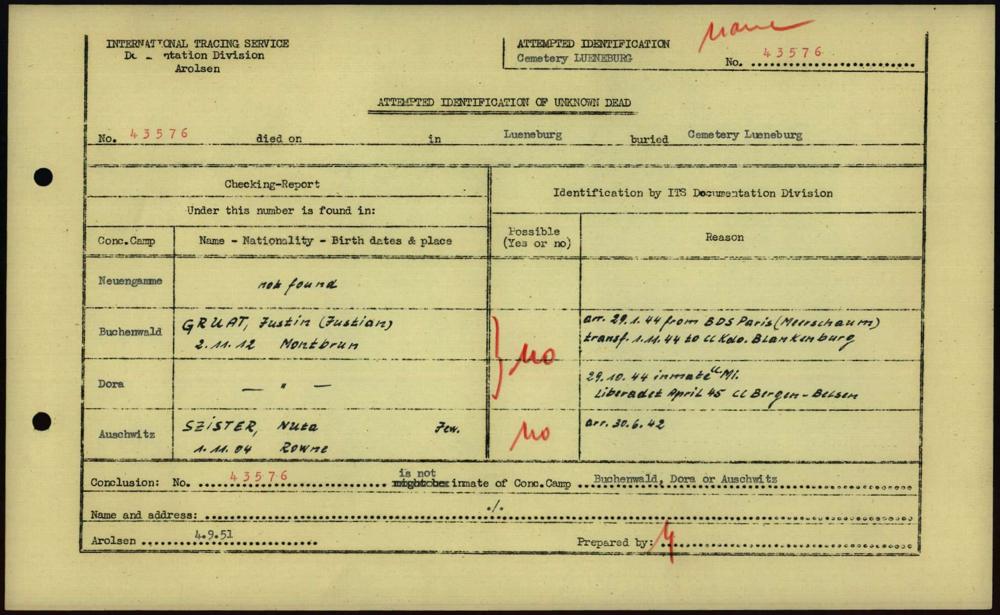 INTERNATIONAL TRACING SERVICE
Documentation Division
Arolsen
ATTEMPTED IDENTIFICATION
Cemetery LUENEBURG
No. 43576
ATTEMPTED IDENTIFICATION OF UNKNOWN DEAD
No. 43576 died on in Lueneburg buried Cemetery Lueneburg
Checking-Report
Under this number is found in:
Identification by ITS Documentation Division
Conc.Camp
Name - Nationality - Birth dates & place
Possible
(Yes or no)
Reason
Neuengamme
not found
Buchenwald
GRUAT, Justin (Justian)
2.11.12 Montbrun
no
arr. 29.1.44 from BDS Paris (Meerschaum)
transf. 1.11.44 to CC Kdo. Blankenburg
Dora
— " —
29.10.44 inmate CC Mi.
Liberadet April 45 CC Bergen-Belsen
Auschwitz
SZISTER, Nuta Jew.
1.11.04 Rowne
no
arr. 30.6.42
Conclusion: No. 43576 is not inmate of Conc.Camp Buchenwald, Dora or Auschwitz
Name and address: ./.
Arolsen 4.9.51 Prepared by: